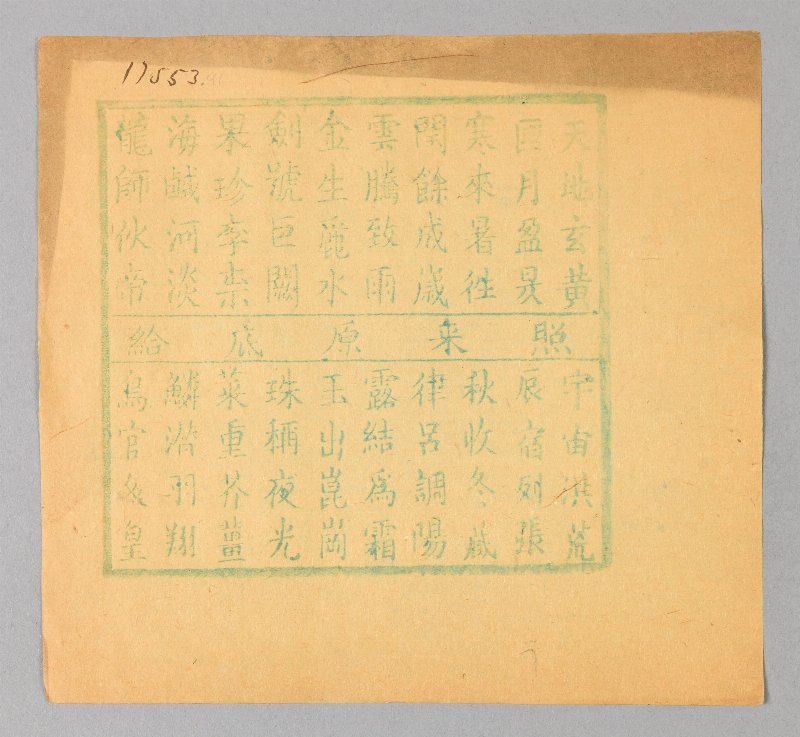 17553
天地玄黃
日月盈昃
寒來暑往
閏餘成歲
雲騰致雨
金生麗水
劍號巨闕
果珍李柰
海鹹河淡
龍師伙帝
照来原底給
宇宙洪荒
辰宿列張
秋收冬藏
律呂調陽
露結爲霜
玉出崑崗
珠稱夜光
菜重芥薑
鱗潛羽翔
鳥官人皇